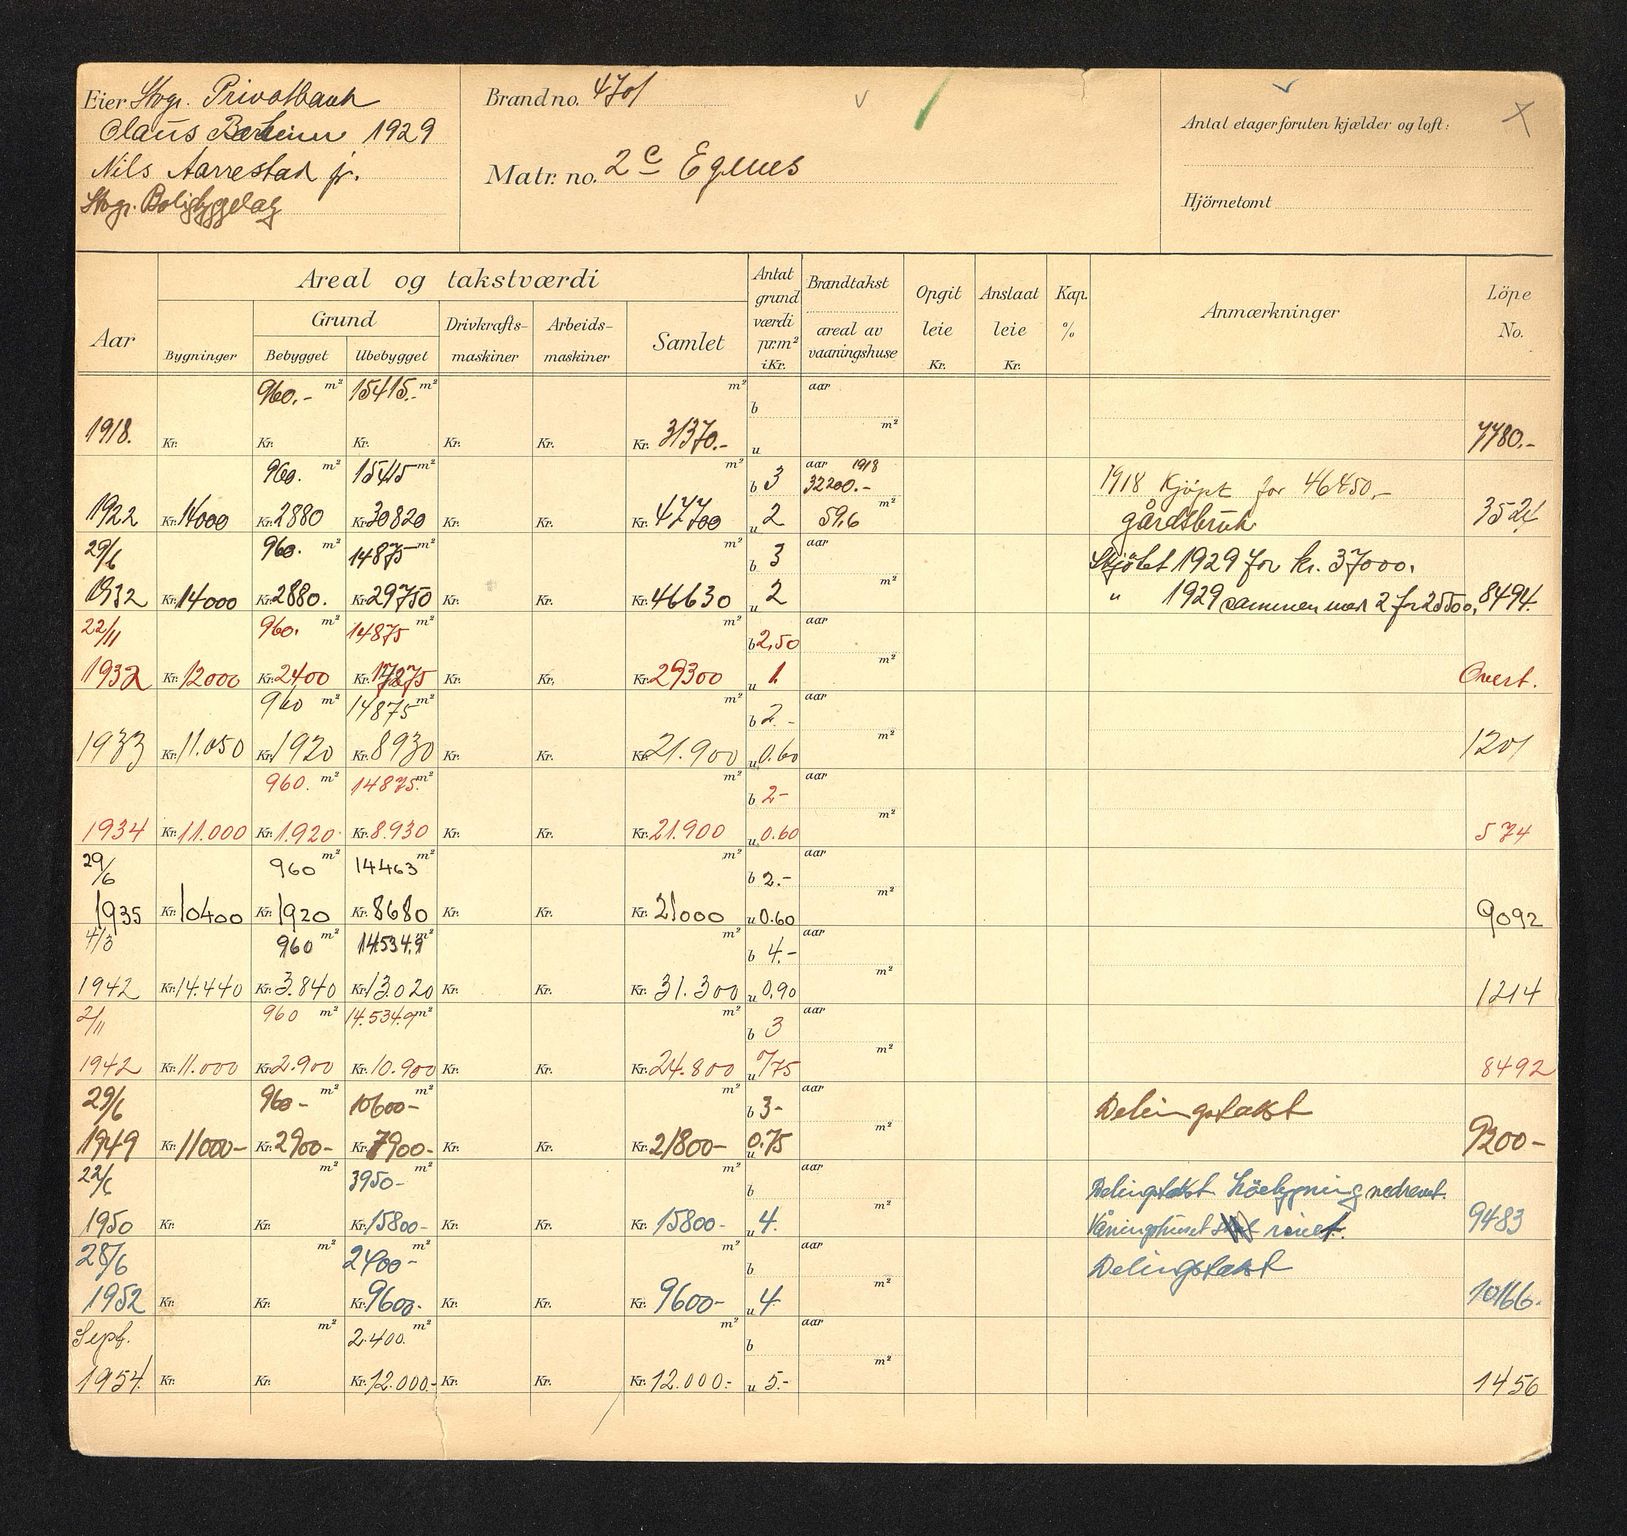 Eier Stvgr. Privatbank
Olaus 1929
Nils Aarrestad jr.
Stvgr. Boligbyggelag
Brand no. 4701
Matr. no. 2c Egenes
Antal etager foruten kjælder og loft:
Hjörnetomt
Areal og takstværdi
Grund
Aar Bygninger Bebygget Ubebygget Drivkrafts-maskiner Arbeids-maskiner Samlet
Antat grund værdi pr.m² i Kr.
Brandtakst
areal av vaaningshuse
Opgit leie Kr.
Anslaat leie Kr.
Kap. %
Anmærkninger
Löpe No.
960.- m² 15415.- m² m² b aar
1918. Kr. Kr. Kr. Kr. Kr. Kr. 31370.- u m² 7780.-
960. m² 15415 m² m² b 3 aar 1918 32200.- 1918 Kjöpt for 46450.-
1922 Kr. 14000 Kr. 2880 Kr. 30820 Kr. Kr. Kr. 47700 u 2 59,6 m² gårdsbruk 3524
29/6 960. m² 14875 m² m² b 3 aar Skjötet 1929 for kr. 37000.
1932 Kr. 14000 Kr. 2880. Kr. 29750 Kr. Kr. Kr. 46630 u 2 m² " 1929 sammen med 2 f 8494.
22/11 960. m² 14875 m² m² b 2,50 aar
1932 Kr. 12000 Kr. 2400 Kr. Kr. Kr. Kr. 29300 u 1. m² Overt.
960 m² 14875 m² m² b 2.- aar
1933 Kr. 11.050 Kr. 1920 Kr. 8930 Kr. Kr. Kr. 21.900 u 0.60 m² 1201
960. m² 14875. m² m² b 2- aar
1934 Kr. 11.000 Kr. 1.920. Kr. 8.930 Kr. Kr. Kr. 21.900 u 0.60 m² 574
29/6 960 m² 14463 m² m² b 2.- aar
1935 Kr. 10400 Kr. 1920 Kr. 8680 Kr. Kr. Kr. 21000 u 0.60 m² 9092
4/3 960 m² 14534,9 m² m² b 4.- aar
1942 Kr. 14.440 Kr. 3.840 Kr. 13.020 Kr. Kr. Kr. 31.300 u 0,90 m² 1214
2/11 960 m² 14.534.9 m² m² b 3 aar
1942 Kr. 11.000 Kr. 2.900 Kr. 10.900 Kr. Kr. Kr. 24.800 u 0/75 m² 8492
29/6 960- m² 10600- m² m² b 3- aar Delingstakst
1949 Kr. 11000- Kr. 2900- Kr. 7900- Kr. Kr. Kr. 21800- u 0.75 m² 9200-
22/6 m² 3950- m² m² b aar Delingstakst nedrevet.
1950 Kr. Kr. Kr. 15800- Kr. Kr. Kr. 15800- u 4. m² Våningshuset revet. 9483
28/6 m² 2400- m² m² b aar Delingstakst
1952 Kr. Kr. Kr. 9600- Kr. Kr. Kr. 9600- u 4 m² 10166.
Sept. m² 2.400. m² m² b aar
1954. Kr. Kr. Kr. 12.000.- Kr. Kr. Kr. 12.000.- u 5.- m² 1456